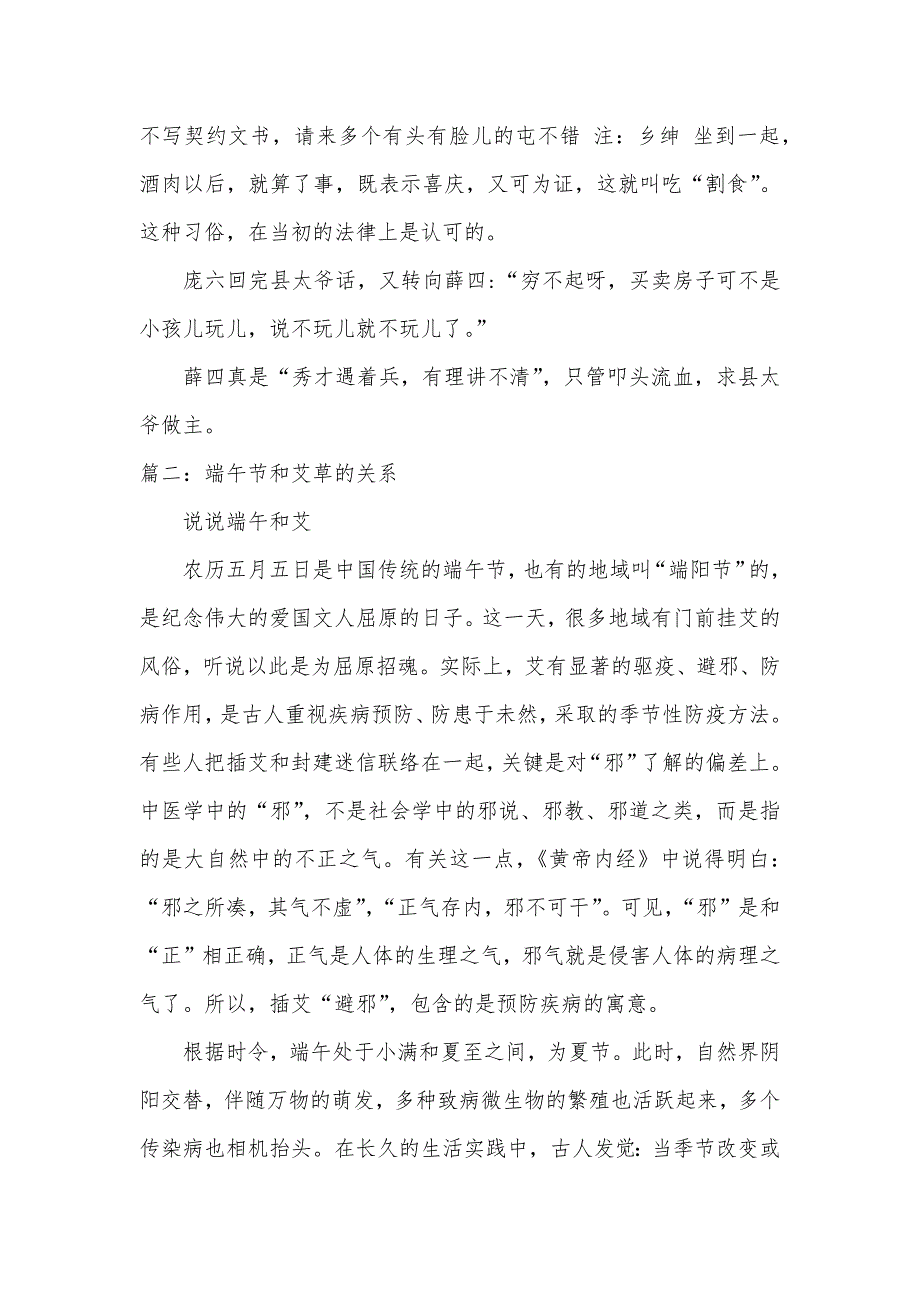 不写契约文书，请来多个有头有脸儿的屯不错 注：乡绅 坐到一起，
酒肉以后，就算了事，既表示喜庆，又可为证，这就叫吃“割食”。
这种习俗，在当初的法律上是认可的。
庞六回完县太爷话，又转向薛四：“穷不起呀，买卖房子可不是
小孩儿玩儿，说不玩儿就不玩儿了。”
薛四真是“秀才遇着兵，有理讲不清”，只管叩头流血，求县太
爷做主。
篇二：端午节和艾草的关系
说说端午和艾
农历五月五日是中国传统的端午节，也有的地域叫“端阳节”的，
是纪念伟大的爱国文人屈原的日子。这一天，很多地域有门前挂艾的
风俗，听说以此是为屈原招魂。实际上，艾有显著的驱疫、避邪、防
病作用，是古人重视疾病预防、防患于未然，采取的季节性防疫方法。
有些人把插艾和封建迷信联络在一起，关键是对“邪”了解的偏差上。
中医学中的“邪”，不是社会学中的邪说、邪教、邪道之类，而是指
的是大自然中的不正之气。有关这一点，《黄帝内经》中说得明白：
“邪之所凑，其气不虚”，“正气存内，邪不可干”。可见，“邪”是和
“正”相正确，正气是人体的生理之气，邪气就是侵害人体的病理之
气了。所以，插艾“避邪”，包含的是预防疾病的寓意。
根据时令，端午处于小满和夏至之间，为夏节。此时，自然界阴
阳交替，伴随万物的萌发，多种致病微生物的繁殖也活跃起来，多个
传染病也相机抬头。在长久的生活实践中，古人发觉：当季节改变或